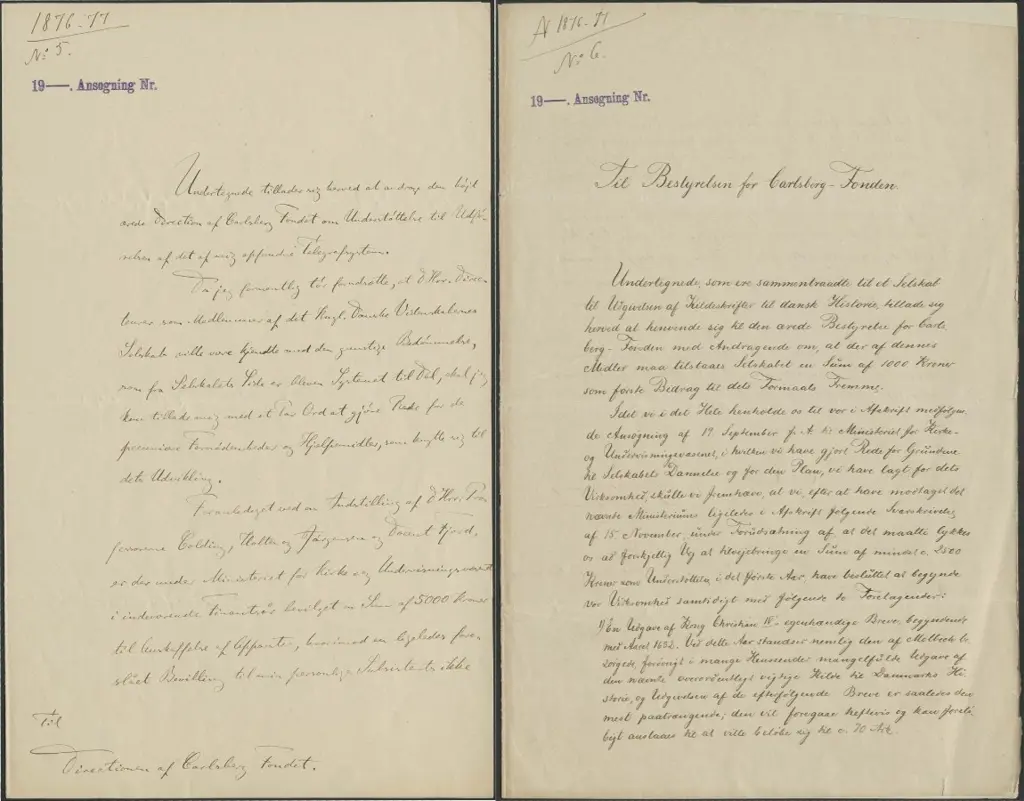 1876-77
No 5.
19—. Ansøgning Nr.
Undertegnede tillader sig herved at andrage den højt
ærede Direction af Carlsberg Fondet om Understøttelse til Udfø-
relsen af det af mig opfundne Telegrafsystem.
Da jeg formentlig tør forudsætte, at d'Hrr. Direc-
teurer som Medlemmer af det Kngl. Danske Videnskabernes
Selskab ville være kjendte med den gunstige Bedømmelse,
som fra Selskabets Side er bleven Systemet til Del, skal jeg
kun tillade mig med et Par Ord at gjøre Rede for de
pecuniære Forudsætninger og Hjælpemidler, som knytte sig til
dets Udvikling.
Foranlediget ved en Indstilling af d'Hrr. Pro-
fessorene Colding, Holten og Jørgensen og Docent Fjord,
er der under Ministeriet for Kirke og Undervisningsvæsenet
i indeværende Finantsår bevilget en Sum af 5000 Kroner
til Anskaffelse af Apparater, hvorimod en ligeledes fore-
slået Bevilling til min personlige Subsistents ikke
Til
Directionen af Carlsberg Fondet.
1876-77
No 6.
19—. Ansøgning Nr.
Til Bestyrelsen for Carlsberg-Fonden.
Undertegnede, som ere sammentraadte til et Selskab
til Udgivelsen af Kildeskrifter til dansk Historie, tillade sig
herved at henvende sig til den ærede Bestyrelse for Carls-
berg-Fonden med Andragende om, at der af dennes
Midler maa tilstaaes Selskabet en Sum af 1000 Kroner
som første Bidrag til dets Formaals Fremme.
Idet vi i det Hele henholde os til vor i Afskrift medfølgen-
de Ansøgning af 19 September f. A. til Ministeriet for Kirke-
og Undervisningsvæsenet, i hvilken vi have gjort Rede for Grundene
til Selskabets Dannelse og for den Plan, vi have lagt for dets
Virksomhed, skulle vi fremhæve, at vi, efter at have modtaget det
nævnte Ministeriums ligeledes i Afskrift følgende Svarskrivelse
af 15 November, under Forudsætning af, at det maatte lykkes
os ad forskjellig Vej at tilvejebringe en Sum af mindst c. 2500
Kroner som Understøttelse i det første Aar, have besluttet at begynde
vor Virksomhed samtidigt med følgende to Foretagender:
1) En Udgave af Kong Christian IV's egenhændige Breve, begyndende
med Aaret 1632. Ved dette Aar standser nemlig den af Molbech be-
sørgede, forøvrigt i mange Henseender mangelfulde Udgave af
den nævnte overordentligt vigtige Kilde til Danmarks Hi-
storie, og Udgivelsen af de efterfølgende Breve er saaledes den
mest paatrængende; den vil foregaae heftevis og kan foreløbigt
anslaaes til at ville beløbe sig til c. 70 Ark.